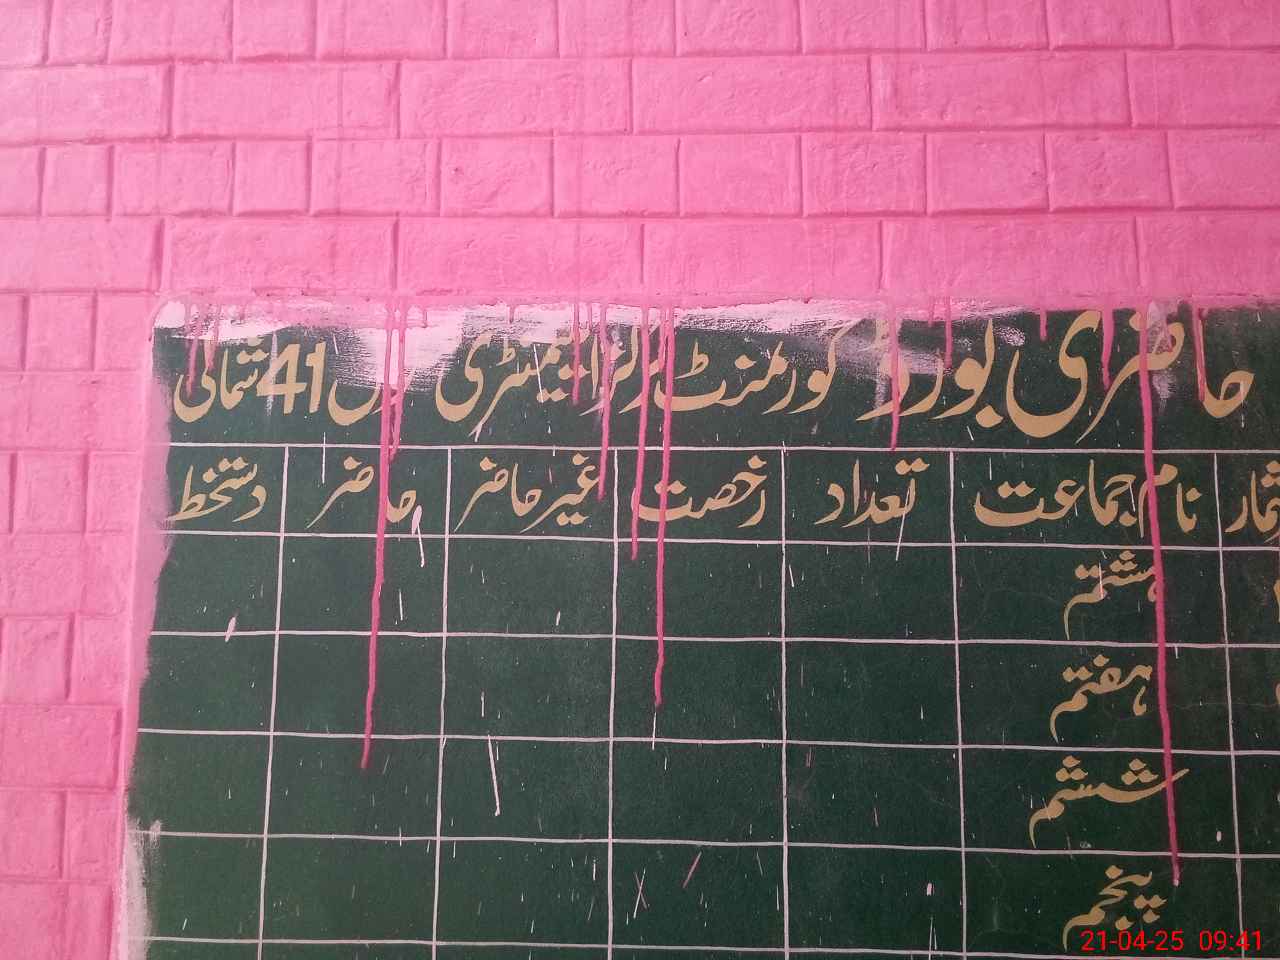 حاضری بورڈ گورنمنٹ گرلز ایلیمنٹری سکول 41 شمالی
نام جماعت تعداد رخصت غیر حاضر حاضر دستخط
ہشتم
ہفتم
ششم
پنجم
21-04-25 09:41